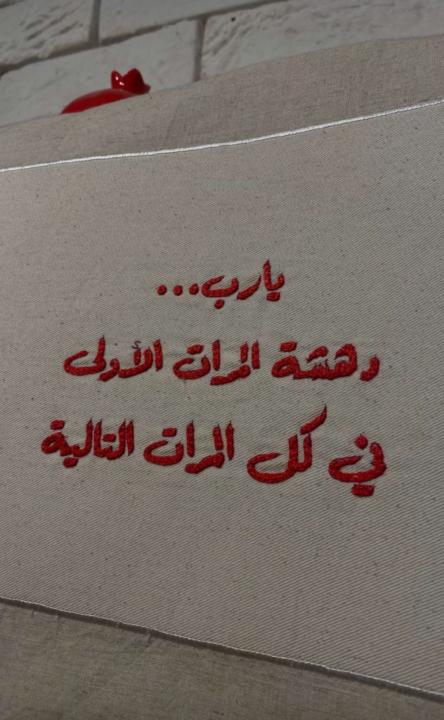 يارب...
دهشة المرات الأولى
في كل المرات التالية